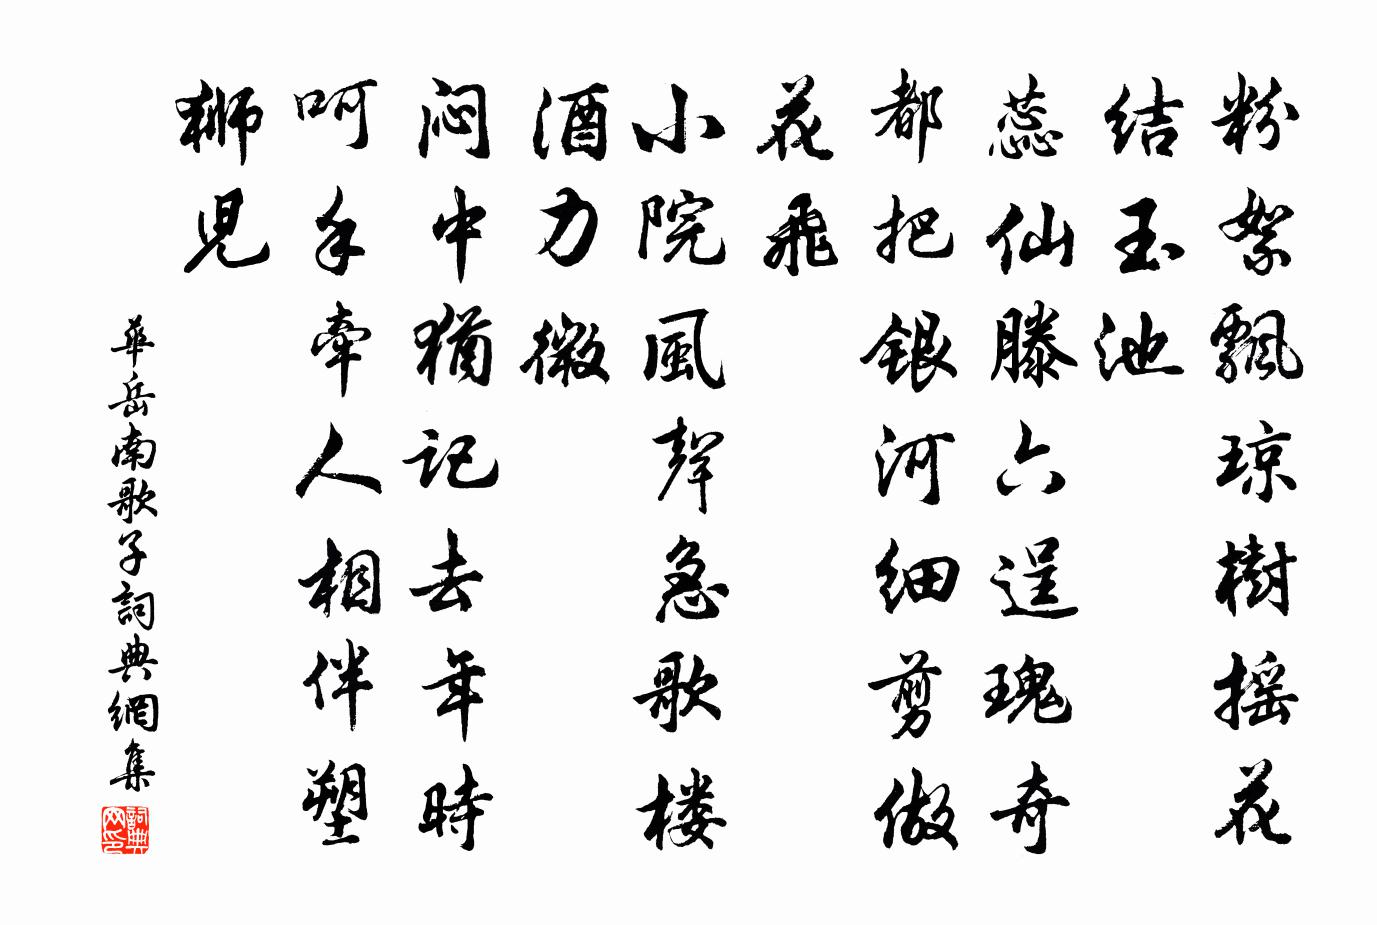 粉絮飄琼樹摇花
结玉池
蕊仙滕六逞瑰奇
都把银河细剪做
花飛
小院風聲急歌楼
酒力微
闷中猶记去年時
呵手牽人相伴塑
狮児
華岳南歌子詞典網集
詞典
网印